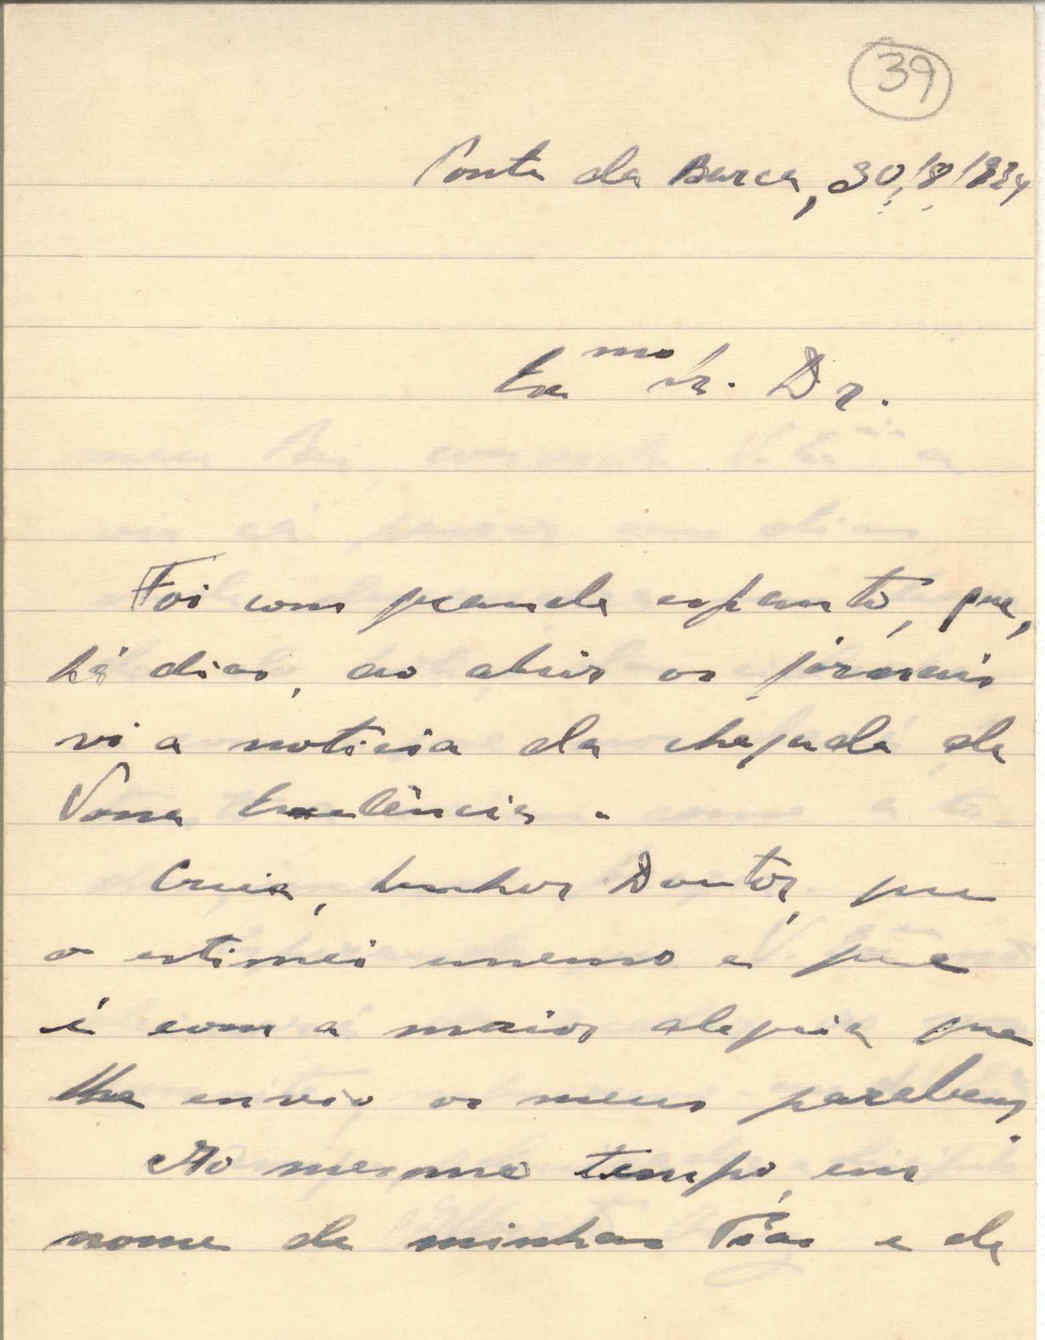 39
Ponte da Barca, 30/8/934
Exmo Sr. Dr.
Foi com grande espanto, que,
há dias, ao abrir os jornais
vi a noticia da chegada de
Vossa Excelência.
Creia, Senhor Doutor, que
o estimei imenso e que
é com a maior alegria que
lhe envio os meus parabens.
Ao mesmo tempo, em
nome de minhas Tias e de